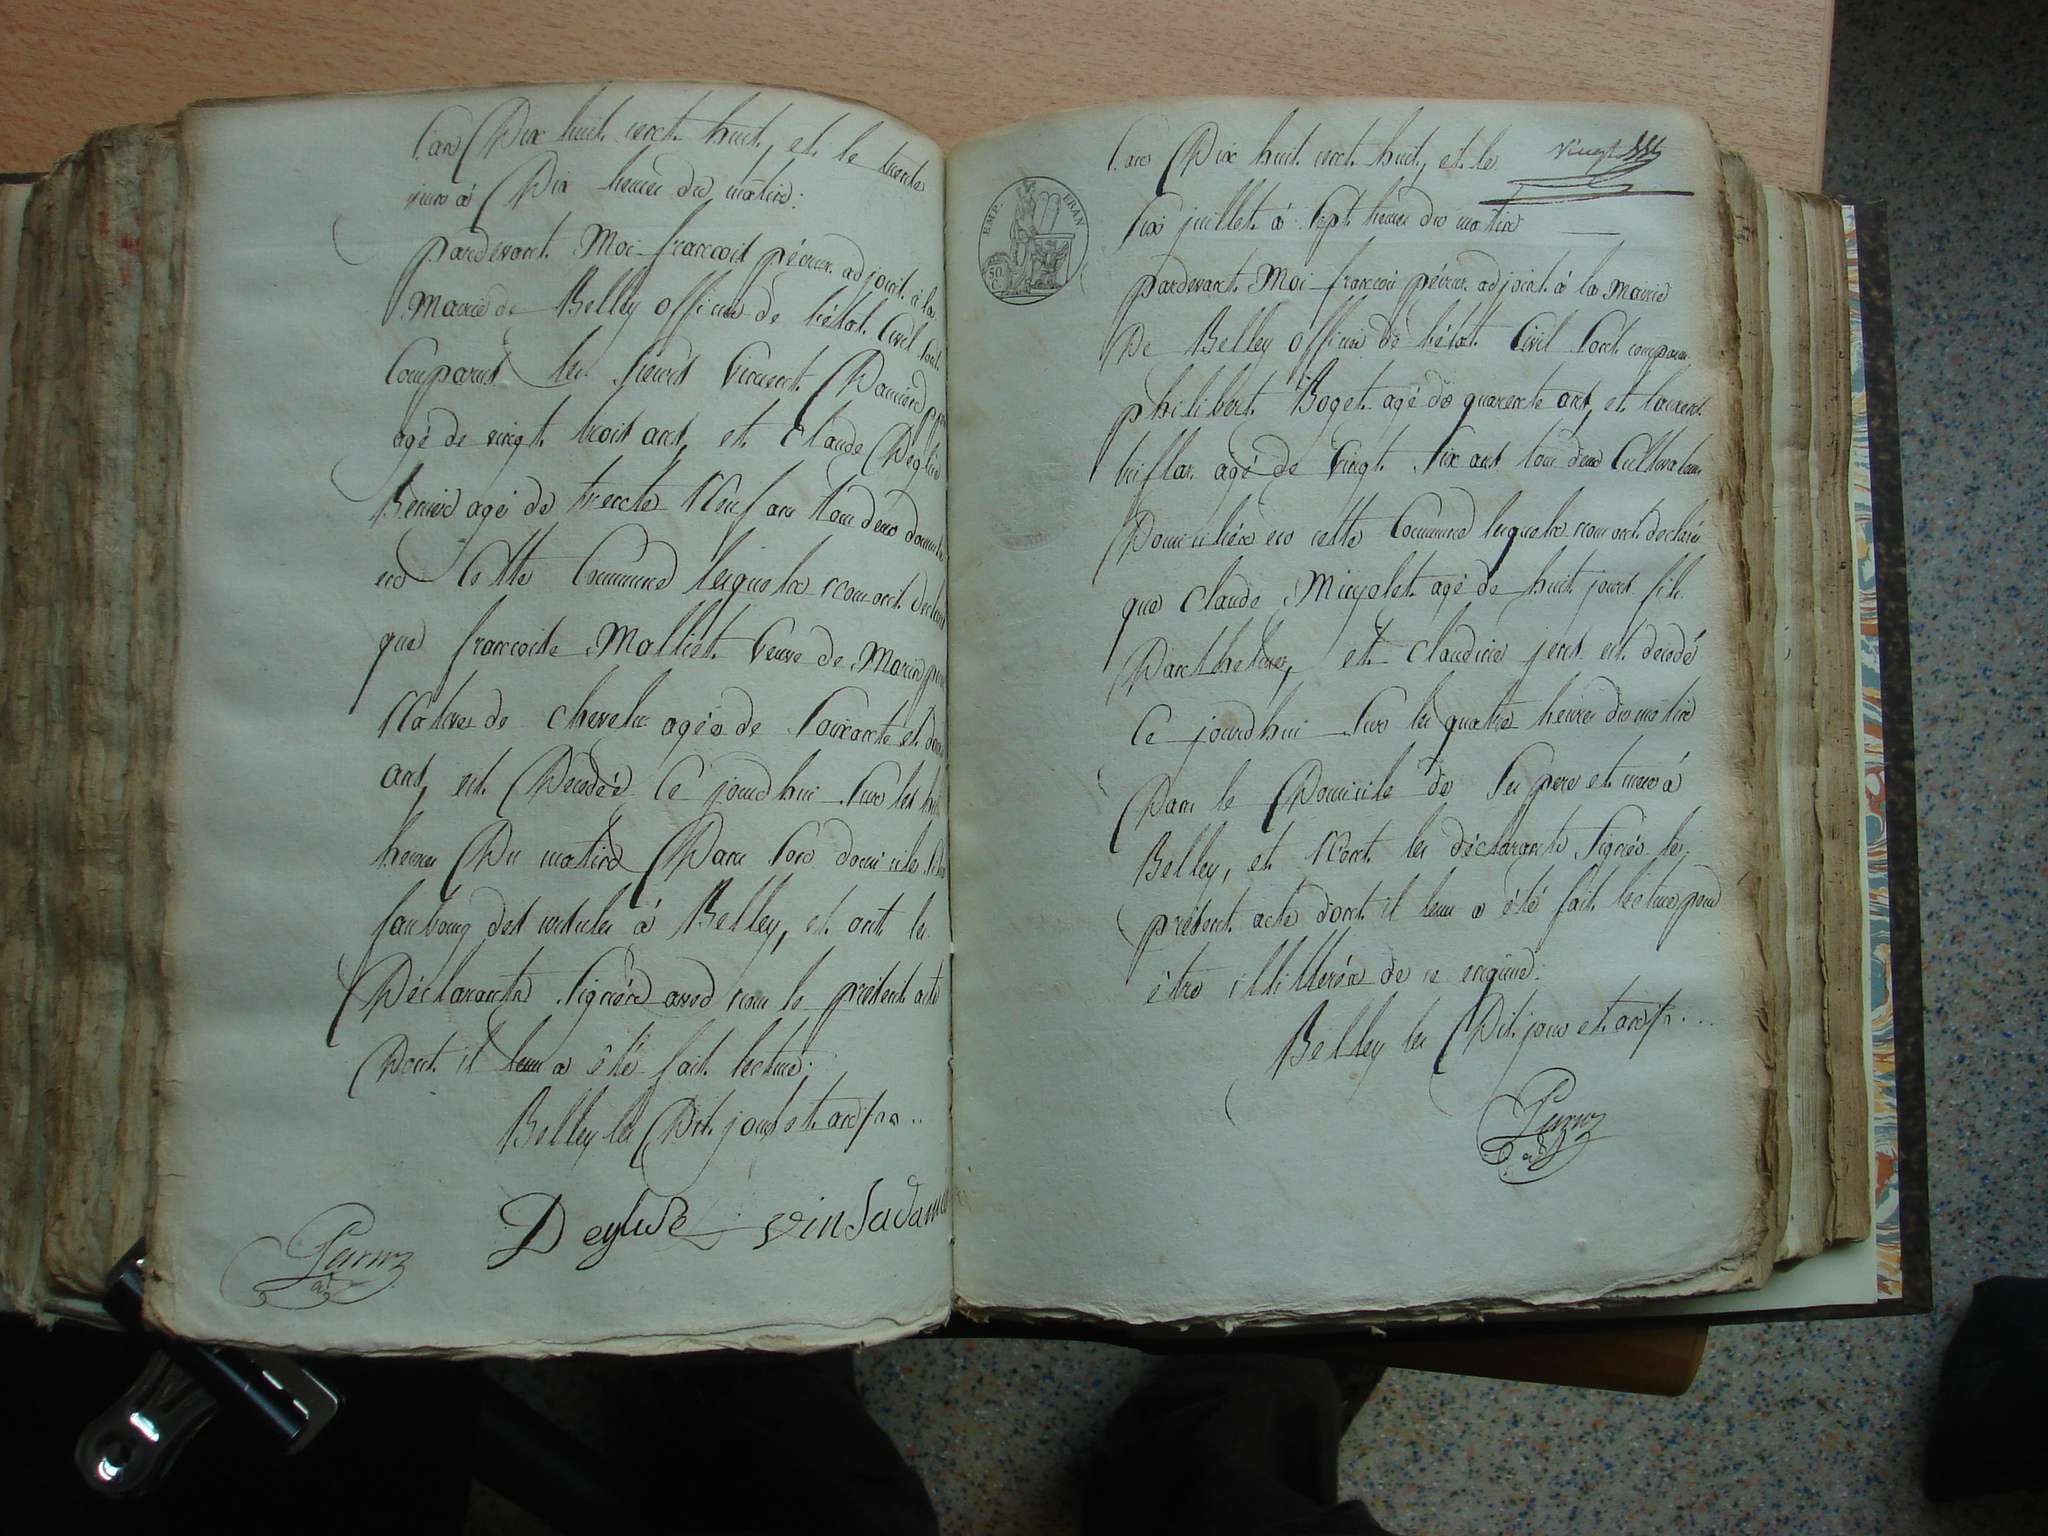 l'an Dix huit cent huit, et le trente
juin à Dix heures du matin:
pardevant Moi françois péricur adjoint à la
Mairie de Belley officier de l'état Civil sont
Comparus les sieurs Vincent Damien
agé de vingt trois ans, et Claude Deglise
agé de trente Neuf ans tous deux
en Cette Commune lesquels nous ont déclaré
que françoise Malliet veuve de Marin
Native de chevelu agée de soixante et
ans, est Décédée Ce jourdhui sur les huit
heures Du matin Dans son domicile
faubourg des à Belley, et ont les
Déclarants signés avec nous le présent acte
Dont il leur a été fait lecture:
Belley les Dit jour et an
vin Sadami
l'an Dix huit cent huit, et le vingt
six juillet à sept heures du matin
pardevant Moi françois adjoint à la Mairie
De Belley officier de l'état Civil sont comparus
philibert Boget agé de quarente ans, et laurent
agé de vingt six ans tous deux Cultivateurs
Domiciliés en cette Commune lesquels nous ont declaré
que Claude Minjolet agé de huit jours fils
D'anthelme, et Claudine jens est décédé
Ce jourdhui sur les quatre heures du matin
Dans le Domicile de ses pere et mere à
Belley, et N'ont les déclarants signés le
présent acte dont il leur a été fait lecture pour
être illitterés de ce enquis:
Belley les Dit jour et an
EMP. FRAN
50 C.